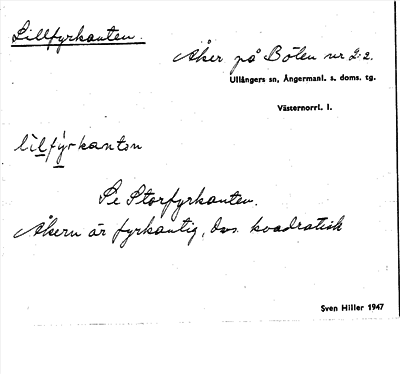 Lillfyrkanten.
Åker på Bölen nr 2:2.
Ullångers sn, Ångermanl. s. doms. tg.
Västernorrl. l.
lìlfýrkantn
Se Storfyrkanten.
Åkern är fyrkantig, dvs. kvadratisk
Sven Hiller 1947